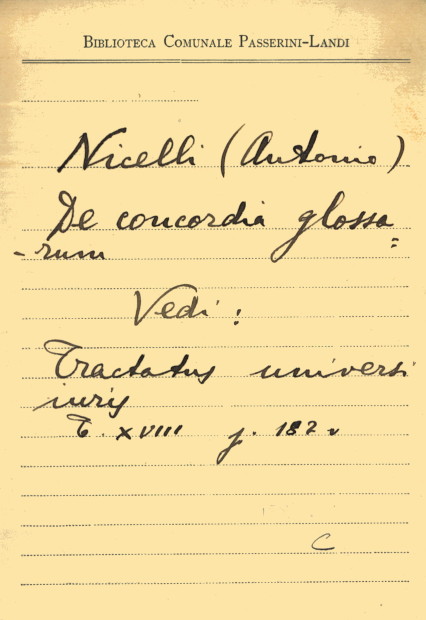 BIBLIOTECA COMUNALE PASSERINI-LANDI
Nicelli (Antonio)
De concordia glossa=
-rum
Vedi:
Tractatus universi
iuris
T. XVIII f. 187 v
C